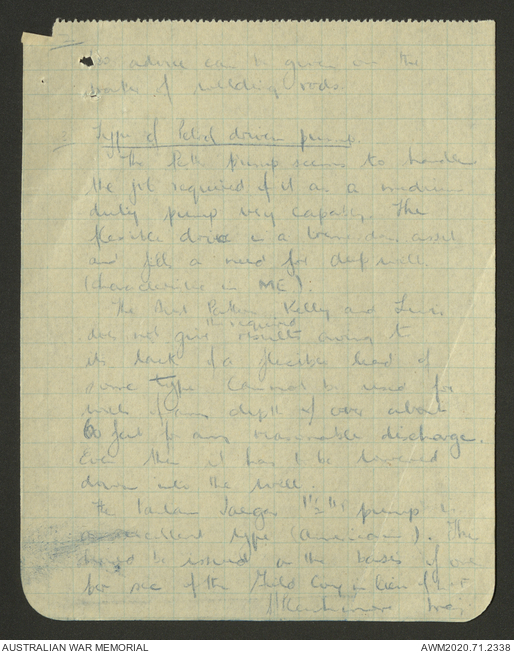 advice can be given on the
of welding rods.
Type of Petrol driven pump.
The pump seems to handle
the job required of it as a medium
duty pump very capably. The
flexible drive is a tremendous asset
and fills a need for deep wells
(characteristic in ME).
The Kelly and Lewis
does not give the required results owing to
its lack of a flexible head of
some type. Cannot be used for
wells of any depth of over about
60 feet for any reasonable discharge.
Even then it has to be lowered
down into the well.
The Jaeger 1½" pump is
excellent type (American). The
should be issued on the basis of one
per sec of the Field Coy in lieu of
AUSTRALIAN WAR MEMORIAL
AWM2020.71.2338